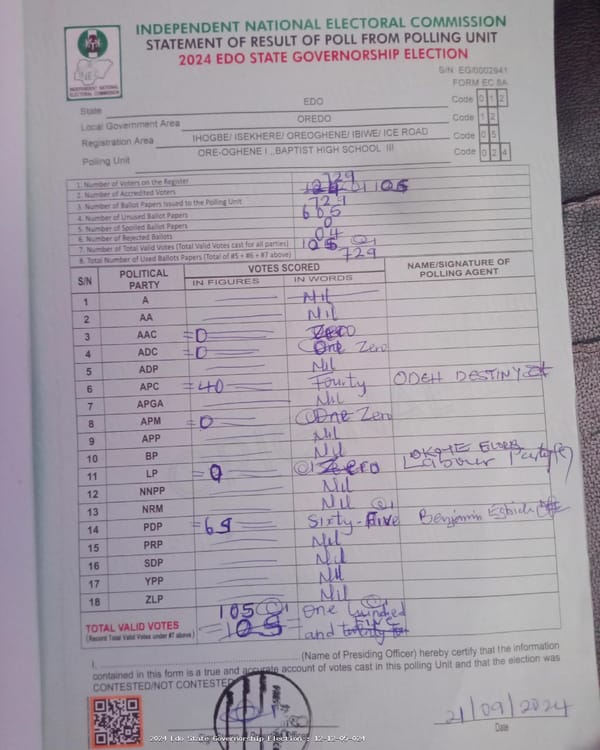 INDEPENDENT NATIONAL ELECTORAL COMMISSION
STATEMENT OF RESULT OF POLL FROM POLLING UNIT
2024 EDO STATE GOVERNORSHIP ELECTION
INDEPENDENT NATIONAL ELECTORAL COMMISSION
S/N: EG/0002941
FORM EC 8A
State EDO Code 0 1 2
Local Government Area OREDO Code 1 2
Registration Area IHOGBE/ ISEKHERE/ OREOGHENE/ IBIWE/ ICE ROAD Code 0 5
Polling Unit ORE-OGHENE I ,.BAPTIST HIGH SCHOOL III Code 0 2 4
1. Number of Voters on the Register 729
2. Number of Accredited Voters 105
3. Number of Ballot Papers Issued to the Polling Unit 729
4. Number of Unused Ballot Papers 605
5. Number of Spoiled Ballot Papers 0
6. Number of Rejected Ballots 04
7. Number of Total Valid Votes (Total Valid Votes cast for all parties) 105
8. Total Number of Used Ballots Papers (Total of #5 + #6 + #7 above) 729
S/N POLITICAL PARTY VOTES SCORED NAME/SIGNATURE OF POLLING AGENT
IN FIGURES IN WORDS
1 A Nil
2 AA Nil
3 AAC =0 Zero
4 ADC =0 Zero
5 ADP Nil
6 APC =40 Fourty ODEH DESTINY
7 APGA Nil
8 APM =0 Zero
9 APP Nil
10 BP Nil
11 LP =0 Zero Labour Party
12 NNPP Nil
13 NRM Nil
14 PDP =65 Sixty-Five Benjamin
15 PRP Nil
16 SDP Nil
17 YPP Nil
18 ZLP Nil
TOTAL VALID VOTES 105 One hundred
(Record Total Valid Votes under #7 above) =105 and five
I, (Name of Presiding Officer) hereby certify that the information
contained in this form is a true and accurate account of votes cast in this polling Unit and that the election was
CONTESTED/NOT CONTESTED
21/09/2024
Date
2024 Edo State Governorship Election : 12-12-05-024